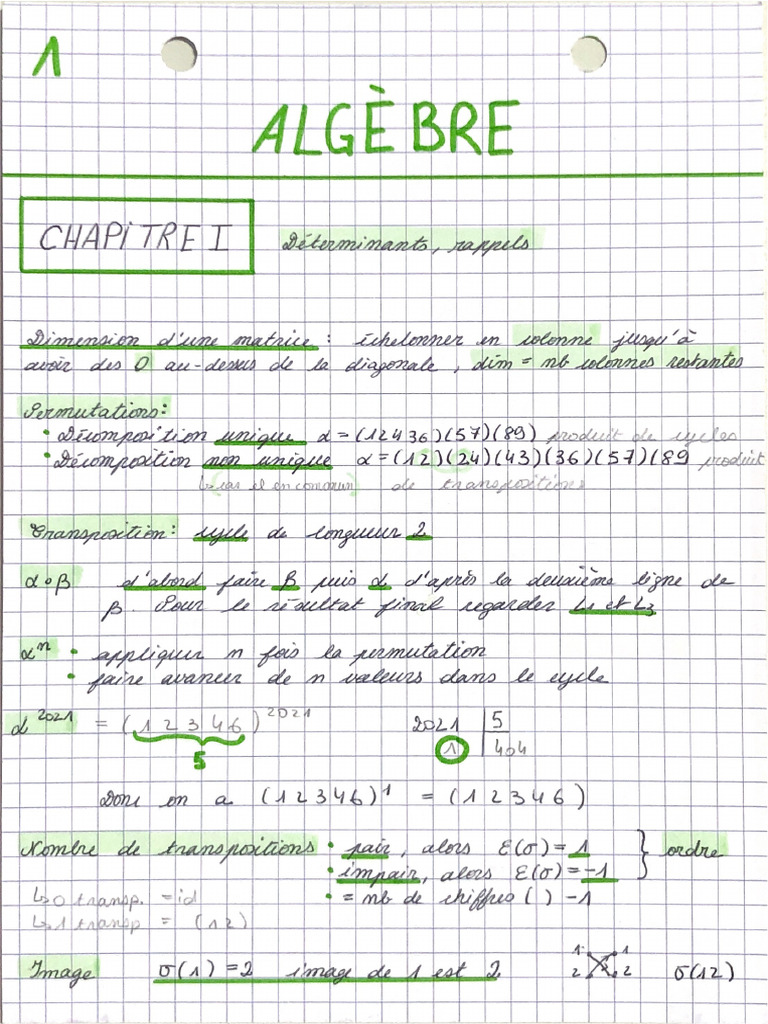 1
ALGÈBRE
CHAPITRE I Déterminants, rappels
Dimension d'une matrice : échelonner en colonne jusqu'à
avoir des 0 au-dessus de la diagonale, dim = nb colonnes restantes
Permutations:
• Décomposition unique α = (12436)(57)(89) produit de cycles
• Décomposition non unique α = (12)(24)(43)(36)(57)(89 produit
↳ cas el en commun de transpositions
Transposition: cycle de longueur 2
α∘β d'abord faire β puis α d'après la deuxième ligne de
β. Pour le résultat final regarder L1 et L3
αⁿ • appliquer n fois la permutation
• faire avancer de n valeurs dans le cycle
α²⁰²¹ = (1 2 3 4 6)²⁰²¹ 2021 | 5
5 1 | 404
Donc on a (1 2 3 4 6)¹ = (1 2 3 4 6)
Nombre de transpositions • pair, alors ε(σ) = 1 } ordre
• impair, alors ε(σ) = -1
↳ 0 transp. = id • = nb de chiffres ( ) - 1
↳ 1 transp = (12)
Image σ(1) = 2 image de 1 est 2 1 1 σ(12)
2 2